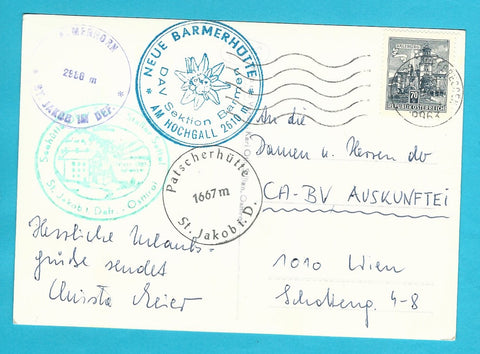 ALMERHORN
2986 m
* ST. JAKOB IM DEF. *
* NEUE BARMERHÜTTE *
DAV Sektion Barmen
AM HOCHGALL 2610 m
Seehütte
St. Jakob i. Defr. - Osttirol
Patscherhütte
1667 m
St. Jakob i. D.
70
REPUBLIK ÖSTERREICH
9963
An die
Damen u. Herren der
CA-BV AUSKUNFTEI
1010 Wien
Schotteng. 4-8
Herzliche Urlaubs-
grüße sendet
Christa Meier